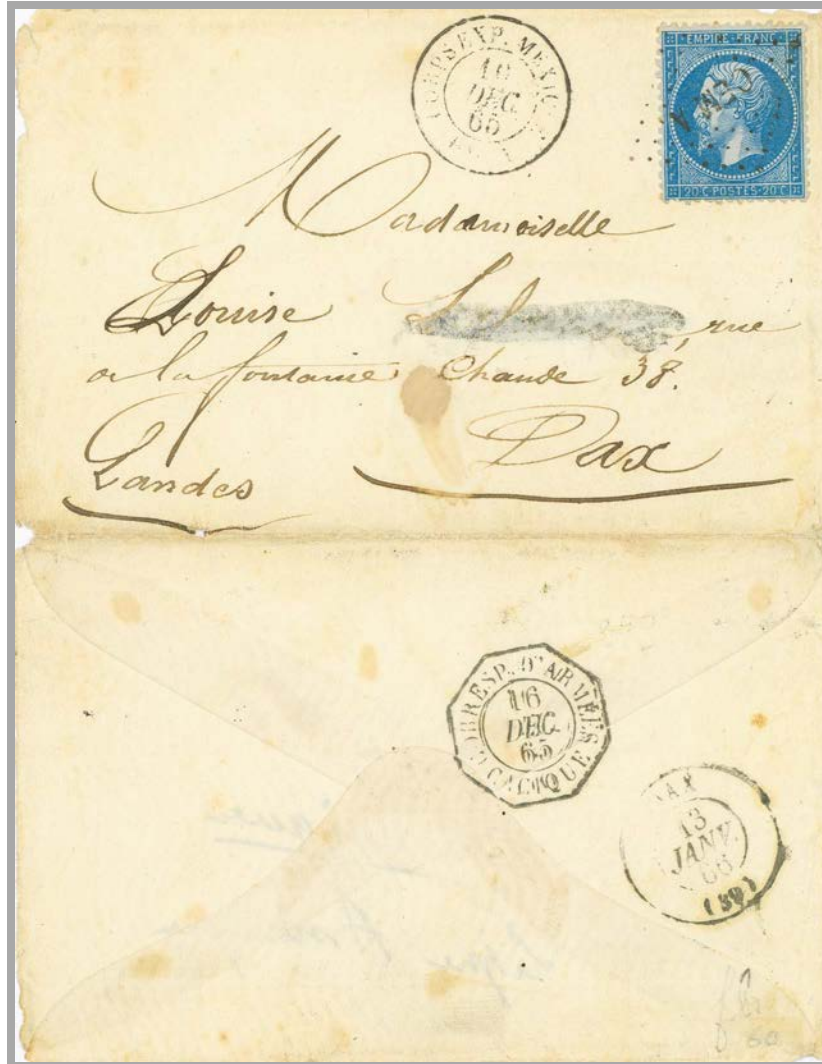 CORPS EXP. MEXIQUE
10
DEC.
65
EMPIRE FRANC
CEM
20 C POSTES 20 C
Mademoiselle
Louise rue
de la fontaine Chaude 38.
Dax
Landes
CORRESP. D'ARMÉES
16
DEC.
65
CACIQUE
DAX
13
JANV.
66
(39)
60